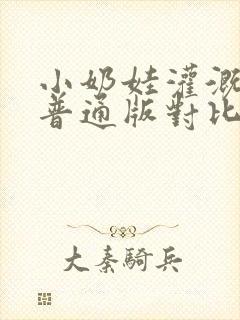 小奶娃灌溉
普通版對比
大秦騎兵